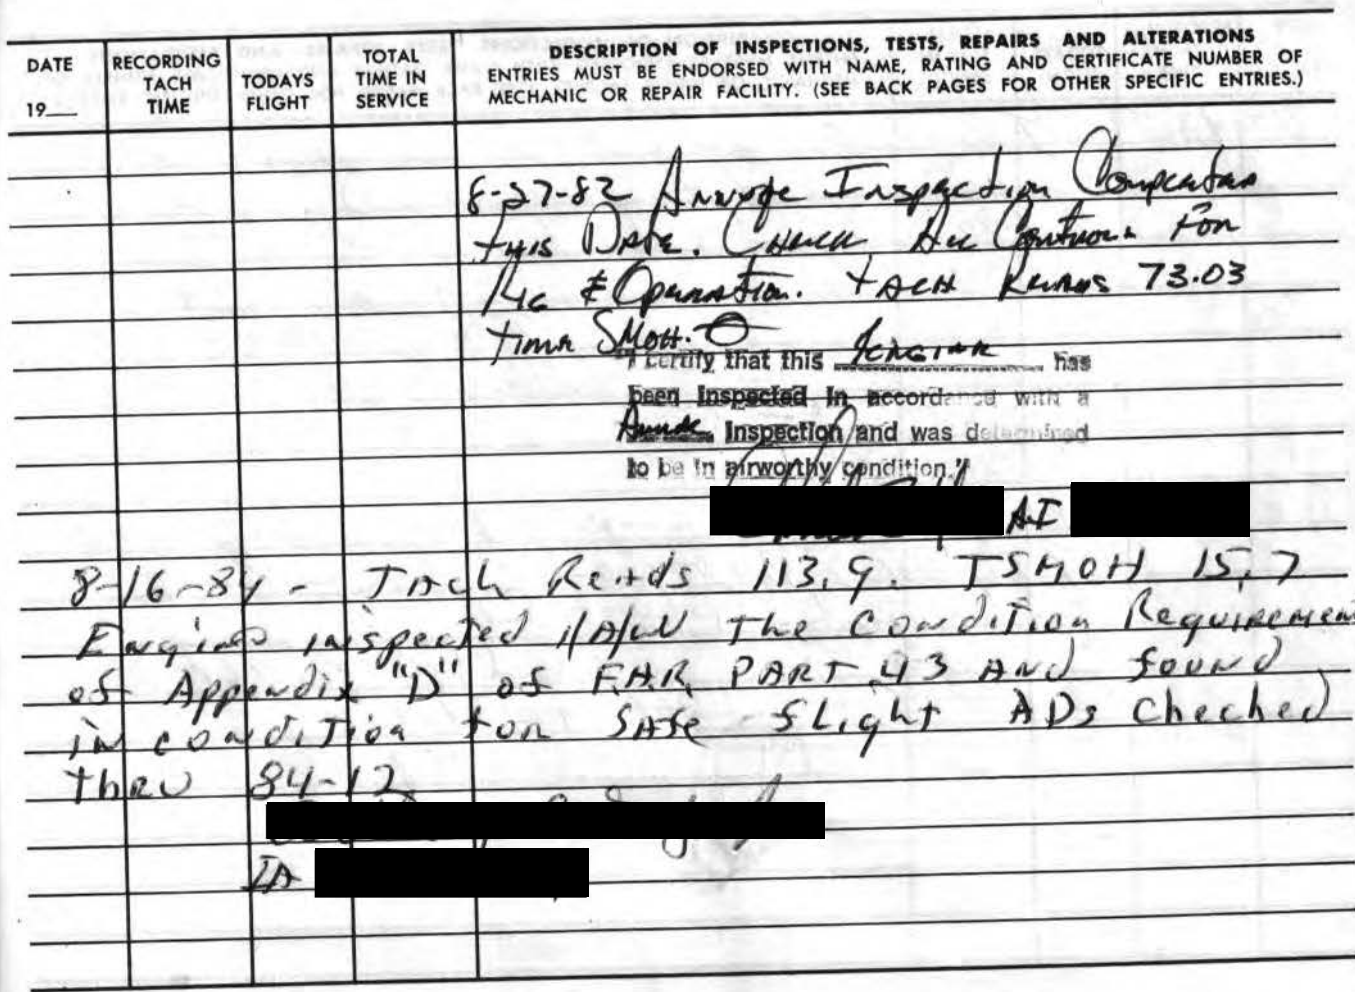 DATE
19__
RECORDING
TACH
TIME
TODAYS
FLIGHT
TOTAL
TIME IN
SERVICE
DESCRIPTION OF INSPECTIONS, TESTS, REPAIRS AND ALTERATIONS
ENTRIES MUST BE ENDORSED WITH NAME, RATING AND CERTIFICATE NUMBER OF
MECHANIC OR REPAIR FACILITY. (SEE BACK PAGES FOR OTHER SPECIFIC ENTRIES.)
8-27-82 Inspection
this Date. Check All For
& Operation. tach Reads 73.03
time SMOH. O
"I certify that this has
been inspected in accordance with a
Inspection and was determined
to be in airworthy condition."
AI
8-16-84 - Tach Reads 113.9. TSMOH 15.7
Engine inspected I/A/W the condition Requirement
of Appendix "D" of F.A.R. PART 43 And found
in condition for safe flight ADs Checked
thru 84-12
IA